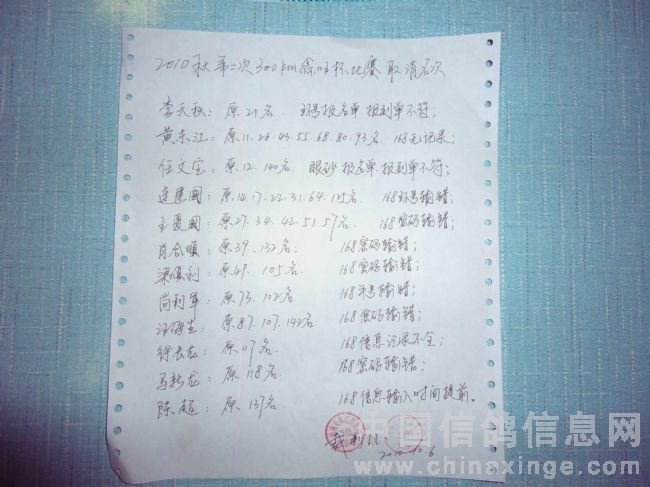 2010秋第二次300km鑫旺杯比赛取消名次
李天秋：原21名. 环号报名单报到单不符；
黄东江：原11.26.43.55.68.80.93名. 168无记录；
任文宝：原12.140名. 眼砂报名单报到单不符；
连建国：原14.17.22.31.64.125名. 168环号输错；
王夏国：原27.34.42.51.57名. 168密码输错；
肖合顺：原39.132名； 168密码输错；
梁顺利：原49.105名. 168密码输错；
尚利军：原73.102名 168年号输错；
汪海生：原87.107.142名. 168密码输错；
徐长龙：原117名. 168信息记录不全；
马新龙：原118名. 168密码输错；
陈超：原137名. 168信息输入时间提前。
裁判组
2010.10.6
中国信鸽信息网
www.chinaxinge.com